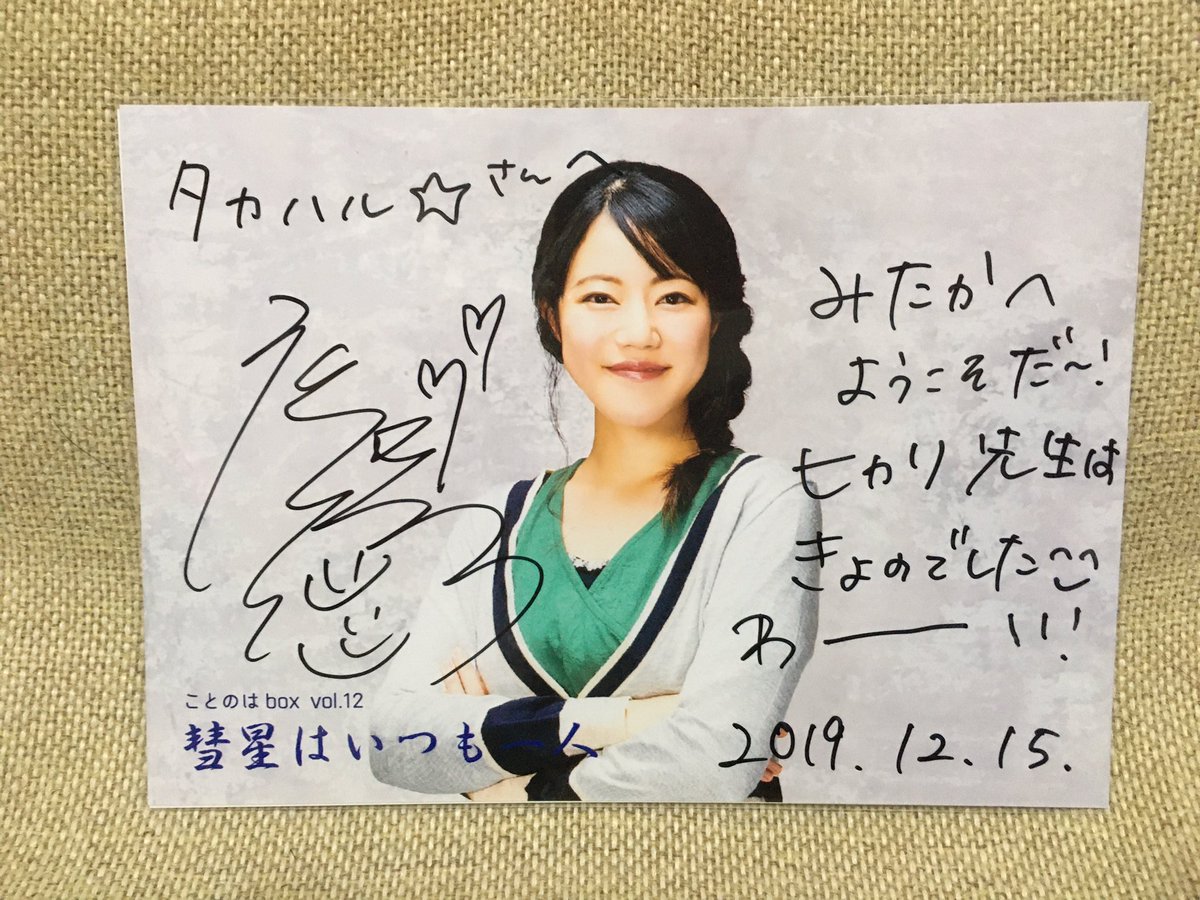 タカハル☆さんへ
みたかへ
ようこそだ〜!
ヒカリ先生は
きよのでした
わーーい!
ことのはbox vol.12
彗星はいつも一人
2019.12.15.